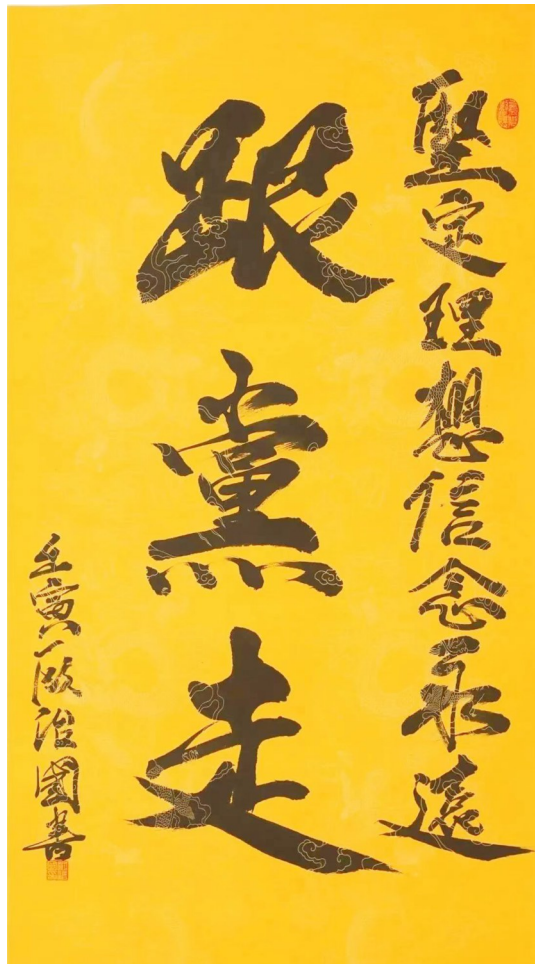 堅定理想信念永遠
跟黨走
壬寅 治國書